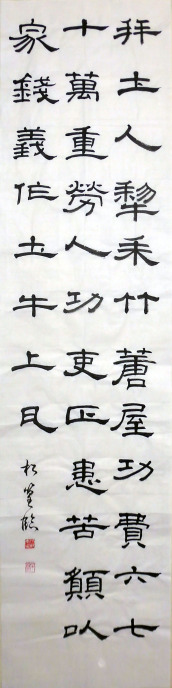 并土人犂耒竹蓎屋功費六七
十萬重勞人功吏正患苦願以
家錢義作土牛上瓦
松 臨